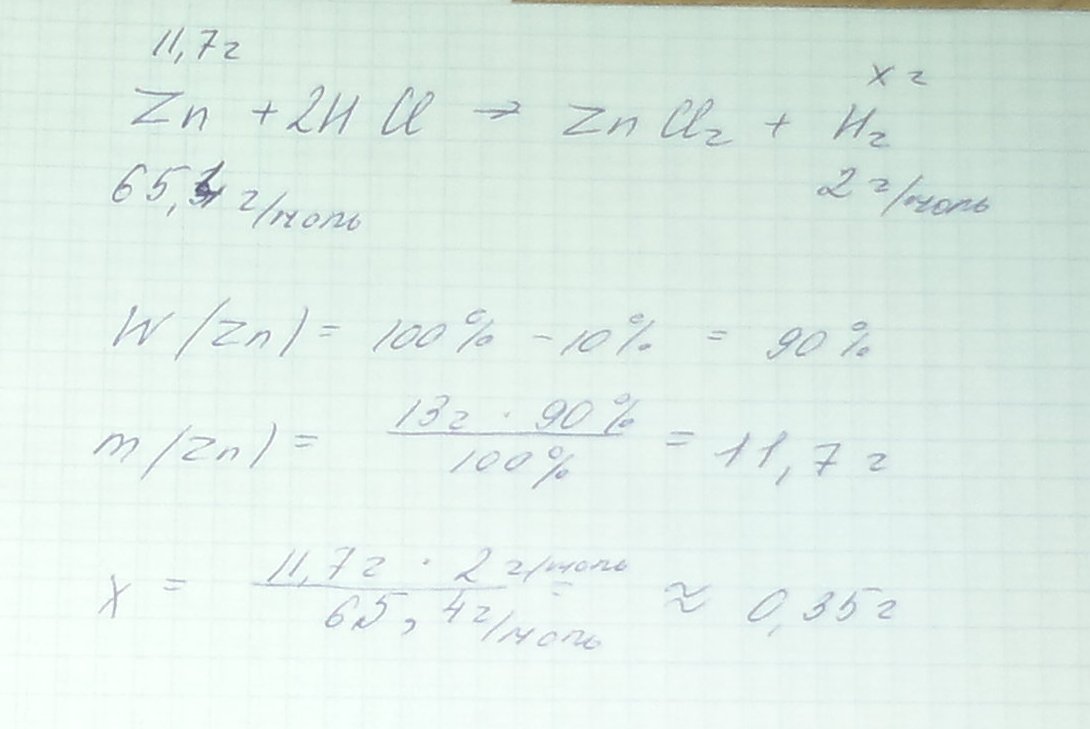 11,7г
х г
Zn + 2HCl → ZnCl₂ + H₂
65,4 г/моль 2 г/моль
W(Zn) = 100% - 10% = 90%
m(Zn) = 13г · 90% / 100% = 11,7 г
x = 11,7г · 2 г/моль / 65,4 г/моль = ≈ 0,35г